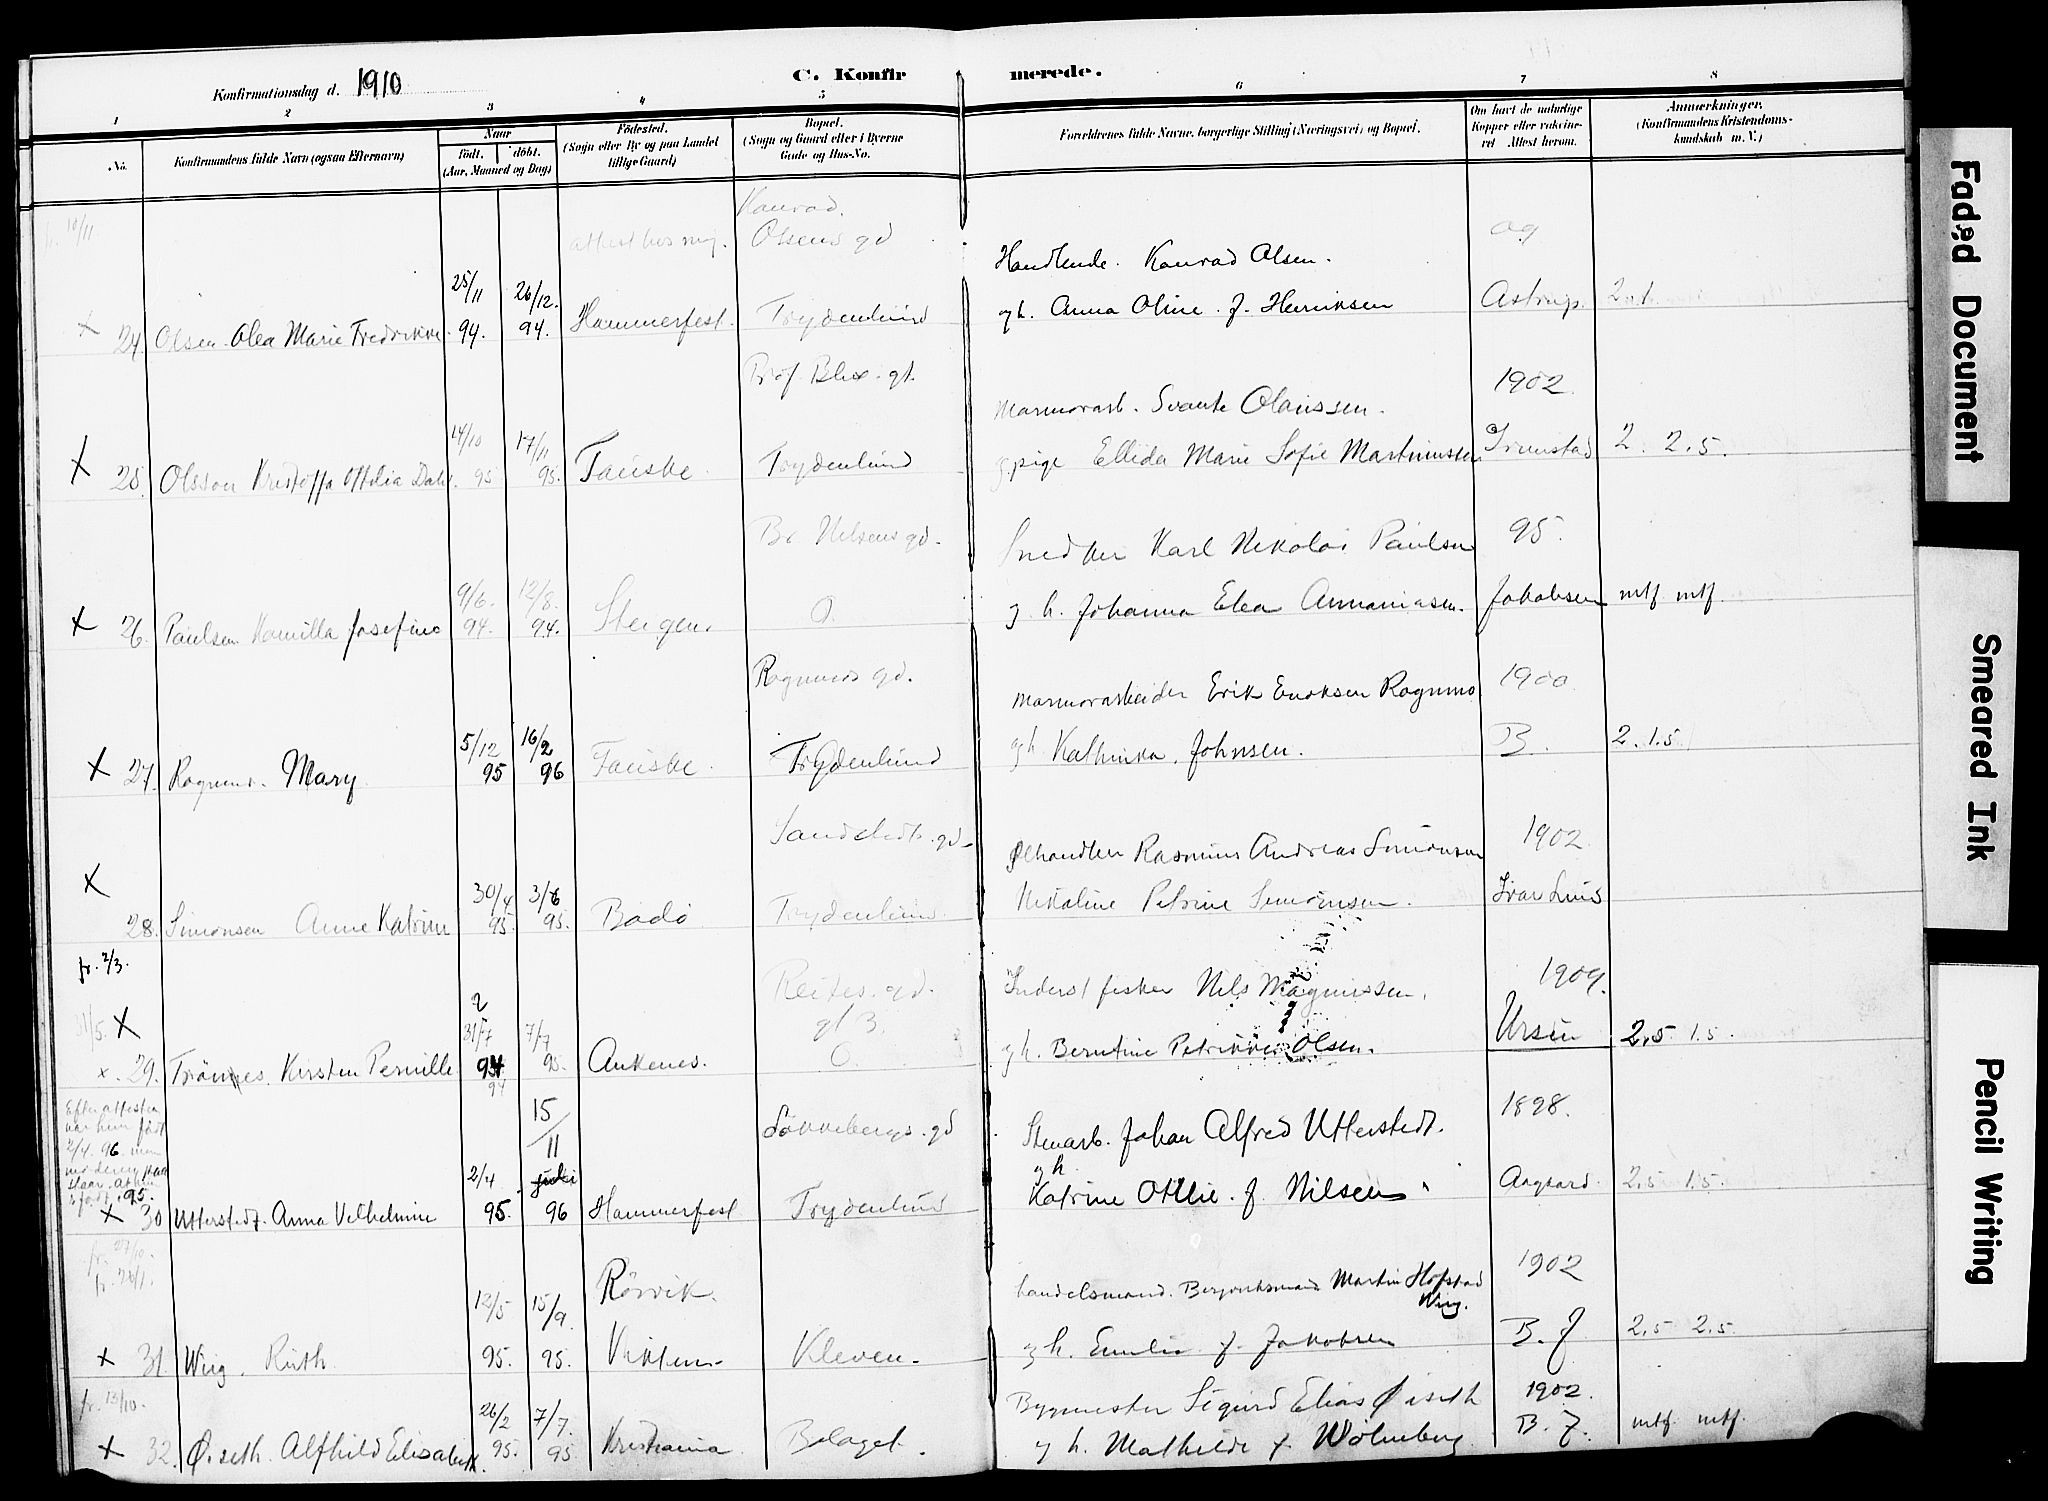 Konfirmationsdag d. 1910
C. Konfir merede.
1 2 3 4 5 6 7 8
No.
Konfirmandens fulde Navn (ogsaa Efternavn)
Naar
født. døbt.
(Aar, Maaned og Dag)
Fødested.
(Sogn eller By og paa Landet
tillige Gaard)
Bopæl.
(Sogn og Gaard eller i Byerne
Gade og Hus-No.
Forældrenes fulde Navne, borgerlige Stilling (Næringsvei) og Bopæl.
Om havt de naturlige
Kopper eller vaksine-
ret Attest herom.
Anmærkninger.
(Konfirmandens Kristendoms-
kundskab m. V.)
10/11 attest hos mig. Konrad
Olsens gd Handlende. Konrad Olsen. 09
25/11 26/12.
x 24. Olsen Olea Marie Fredrikke 94. 94. Hammerfest. Frydenlund gh. Anna Oline f. Henriksen Astrup. 2.1
Prof. Blix. gt. Marmorarb. Svante Olaussen. 1902
14/10 17/11
x 25. Olsson Kristoffa Ottilia Dah. 95 95. Fauske Frydenlund g pige Ellida Marie Sofie Martinussen Irmestad 2. 2.5.
Br Nilsens gd. Snedker Karl Nikolai Paulsen 95.
9/6. 12/8.
x 26. Paulsen Kamilla Josefine 94. 94. Steigen. O. g. h. Johanna Elea Annaniasen. Jakobsen mtf mtf
Rognmos gd. Marmorarbeider Erik Enoksen Rognmo 1900
5/12 16/2
x 27. Rognmo. Mary 95 96 Fauske. Frydenlund gh. Kathinka. Johnsen. B. 2. 1.5
Sandstedts. gd. Ølhandler Rasmus Andreas Simonsen 1902.
x 30/4 3/6
28. Simonsen Anne Katrine 95. 95. Bodö Frydenlund Nikoline Petrine Simonsen. Ivar Lund
fr. 2/3. Reites. gd. Inderst fisker Nils Magnussen. 1909.
31/5. x 2
31/7 7/7 gt 3.
x. 29. Trönnes. Kirsten Pernille 94 95. Ankenes. O gh. Berntine Petrikke Olsen. Ursin 2,5 1.5.
94
Efter attesten
var hun født
2/4. 96 men
moderen paa
staar. at hun
er født i 95.
15/11 Løkkebergs. gd Stenarb. Johan Alfred Utterstedt. 1898.
2/4 juli gh
x 30 Utterstedt. Anna Vilhelmine 95. 96 Hammerfest Frydenlund Katrine Otilie. f. Nilsen Aagaard. 2.5 1.5.
fr. 27/10.
fr. 28/1. Rörvik. handelsmand. Bergverksmand Martin Hofstad
Wiig. 1902
12/5 15/9.
x 31. Wiig. Ruth 95. 95. Vikten Kleven. gh. Emilie f. Jakobsen B. f 2.5 2.5.
fr. 13/10. Bygmester Sigurd Elias Øiseth 1902.
26/2 7/7.
x 32. Øiseth. Alfhild Elisabeth. 95. 95 Kristiania Bolaget. g h. Mathilde f. Wolmberg B. f. mtf. mtf.
Faded Document
Smeared Ink
Pencil Writing